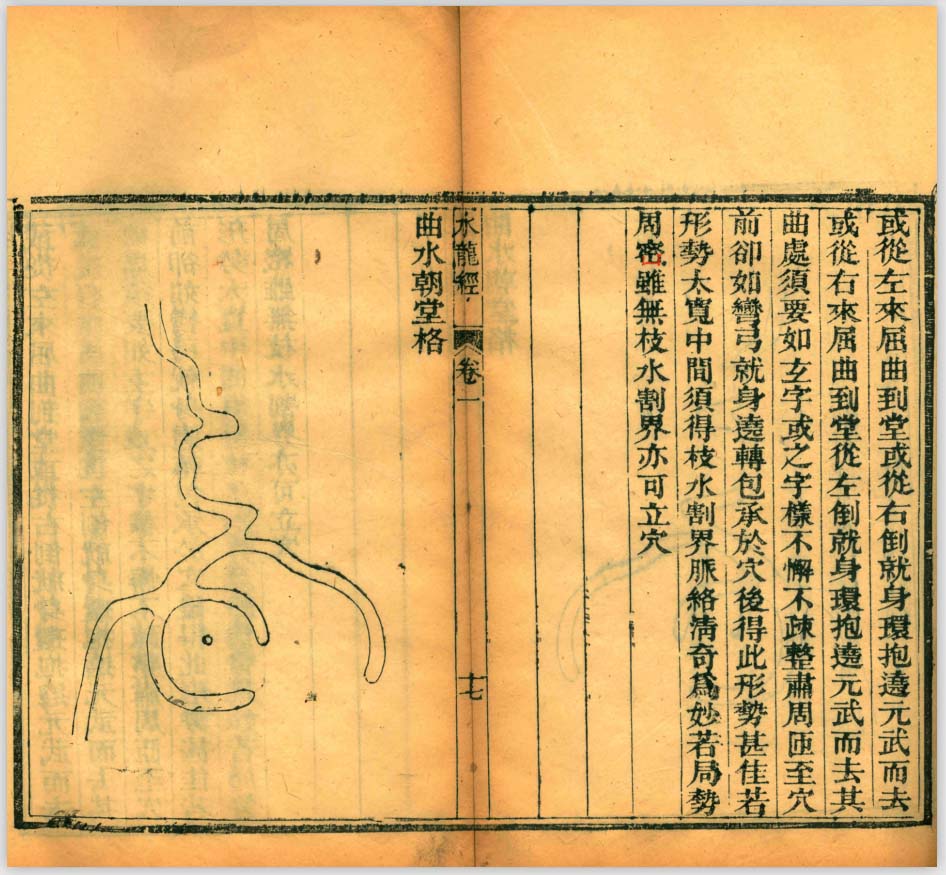 或從左來屈曲到堂或從右倒就身環抱遶元武而去
或從右來屈曲到堂從左倒就身環抱遶元武而去其
曲處須要如玄字或之字樣不懈不疎整肅周匝至穴
前卻如彎弓就身遶轉包承於穴後得此形勢甚佳若
形勢太寬中間須得枝水割界脈絡清奇為妙若局勢
周密雖無枝水割界亦可立穴
水龍經 卷一 十七
曲水朝堂格